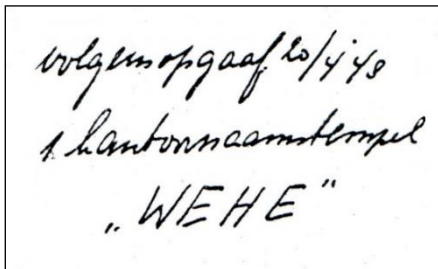 volgens opgaaf 20/4 '48
1 kantoornaamstempel
„WEHE”